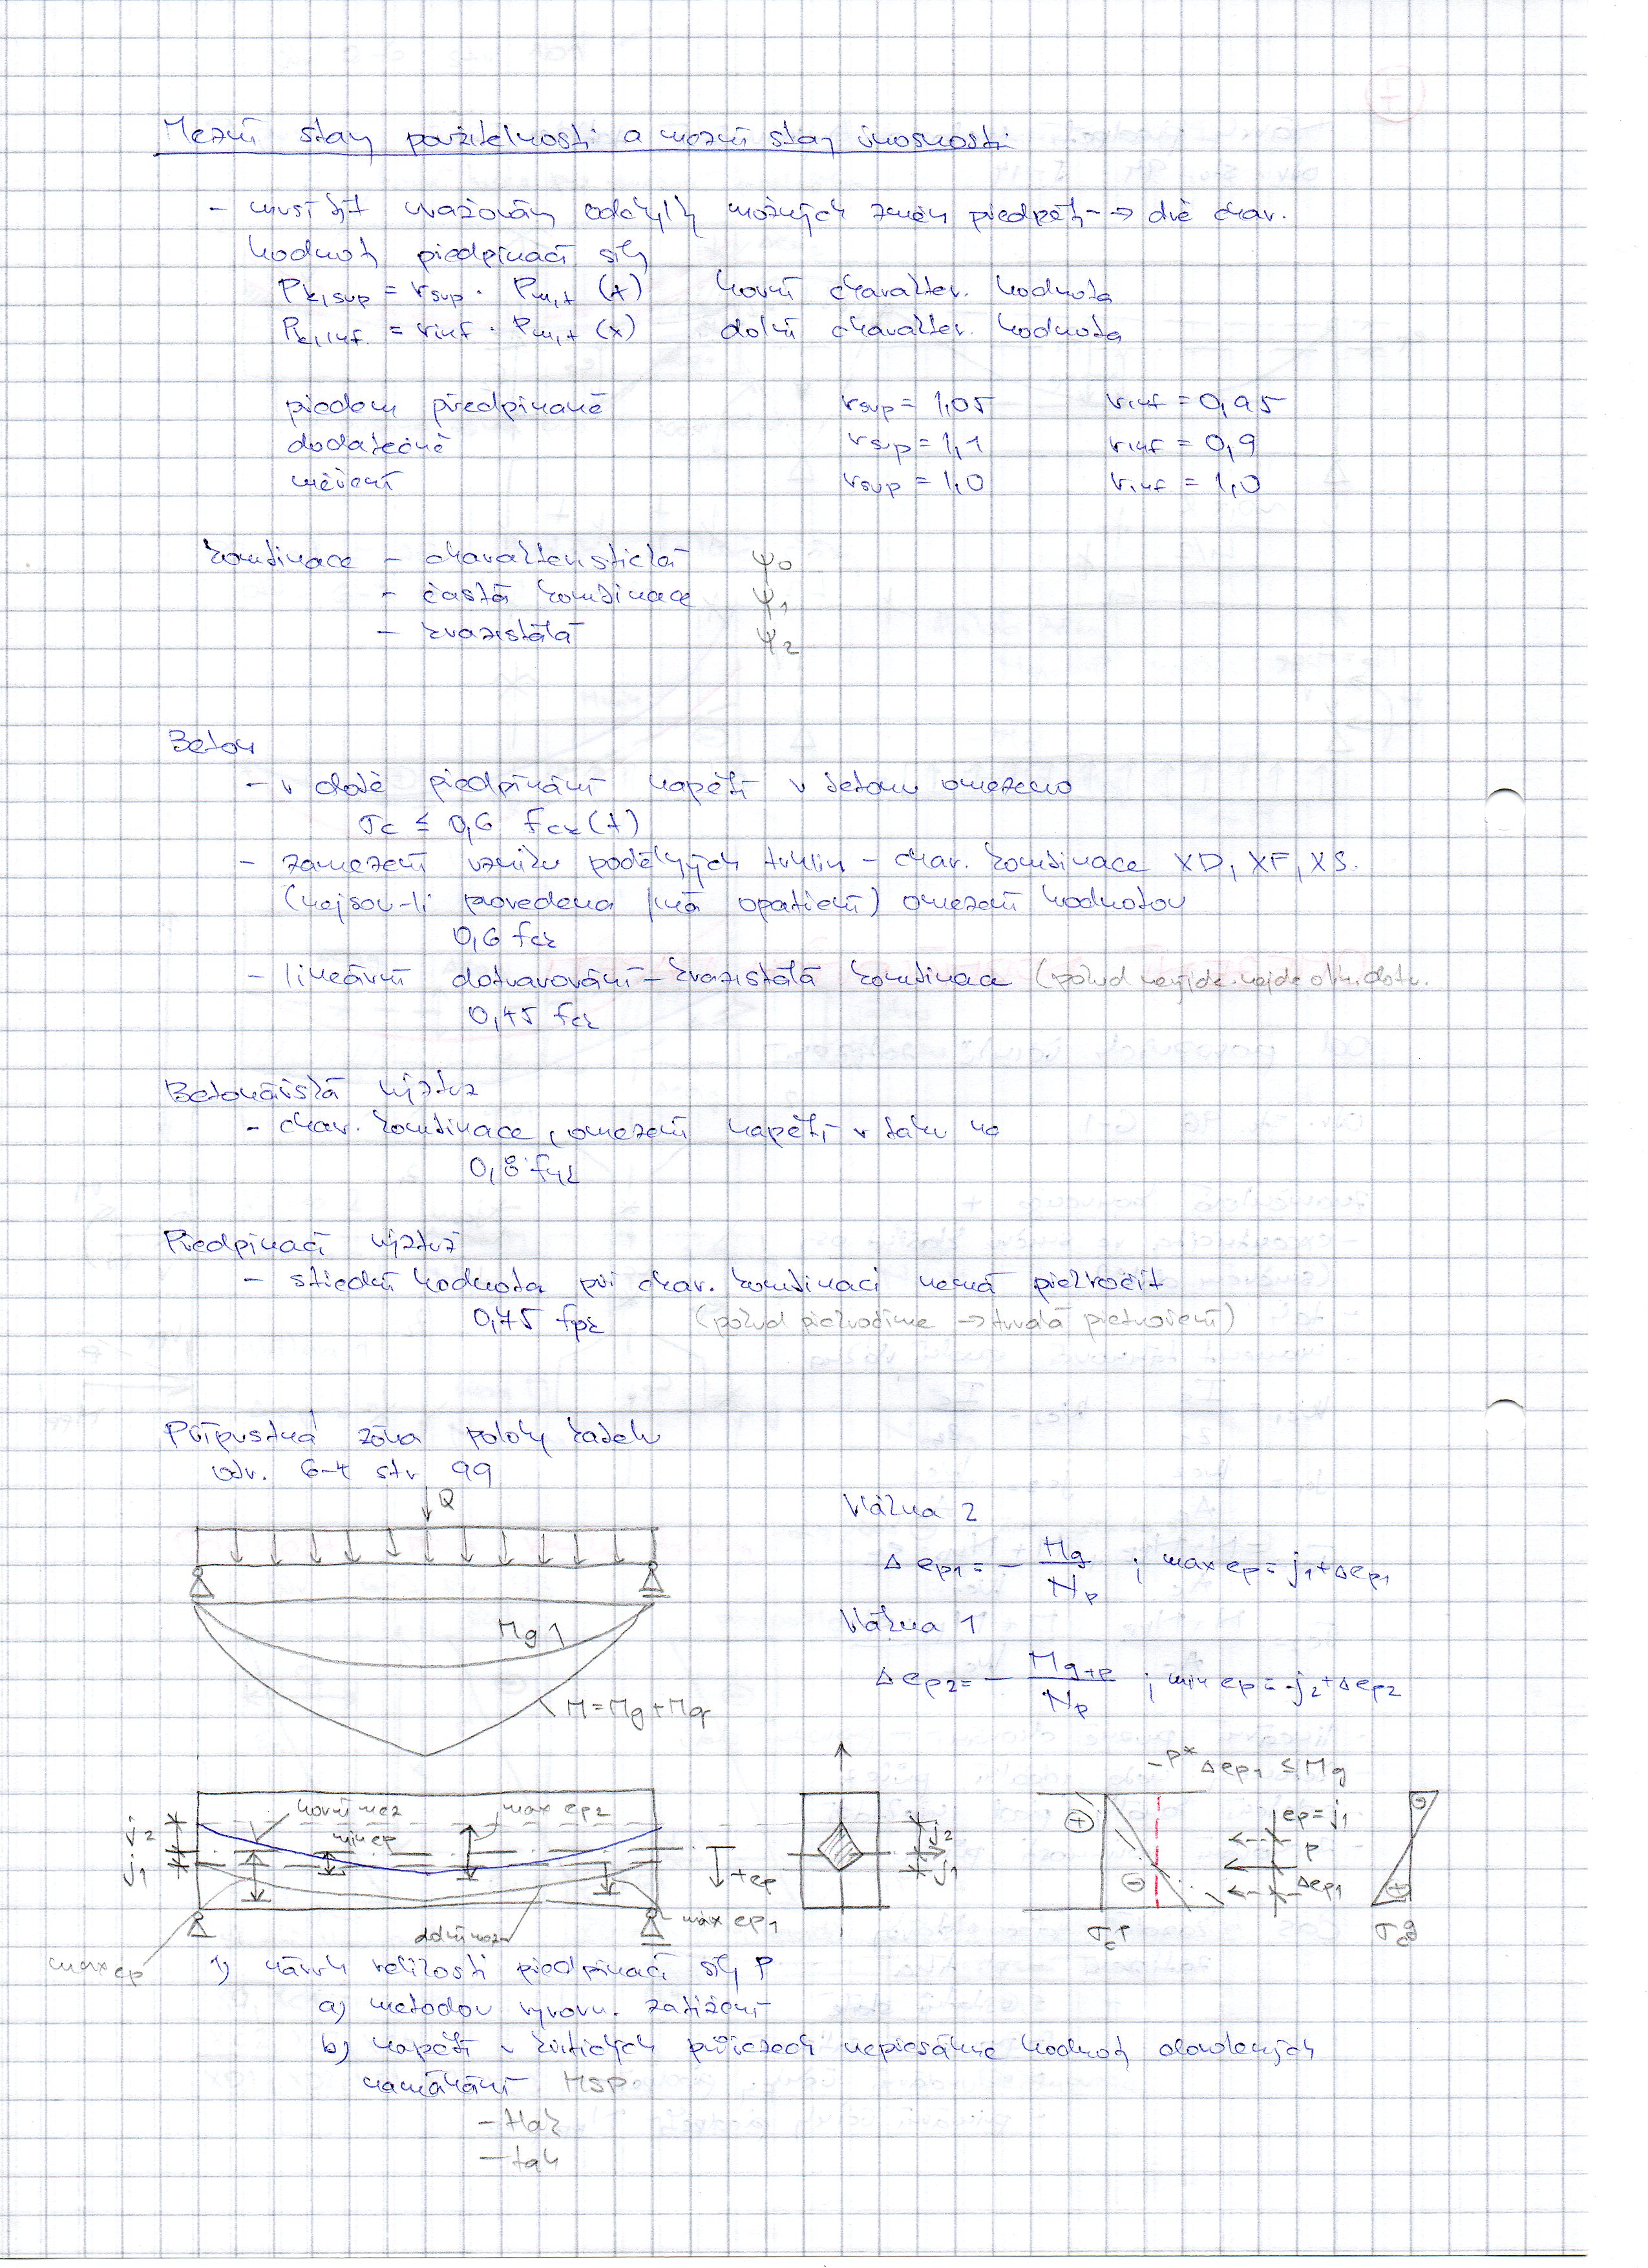 Mezní stav použitelnosti a mezní stav únosnosti
- musí být uvažovány odchylky možných změn předpětí → dvě char.
hodnoty předpínací síly
Pk,sup = rsup · Pm,t (x) horní charakter. hodnota
Pk,inf = rinf · Pm,t (x) dolní charakter. hodnota
předem předpínané rsup = 1,05 rinf = 0,95
dodatečně rsup = 1,1 rinf = 0,9
měření rsup = 1,0 rinf = 1,0
kombinace - charakteristická ψ0
- častá kombinace ψ1
- kvazistálá ψ2
Beton
- v době předpínání napětí v betonu omezeno
σc ≤ 0,6 fck (t)
- zamezení vzniku podélných trhlin - char. kombinace XD, XF, XS.
(nejsou-li provedena jiná opatření) omezení hodnotou
0,6 fck
- lineární dotvarování - kvazistálá kombinace (pokud nevyjde, nejde o lin. dotv.
0,45 fck
Betonářská výztuž
- char. kombinace, omezení napětí v tahu na
0,8 fyk
Předpínací výztuž
- střední hodnota při char. kombinaci nemá překročit
0,75 fpk (pokud překročíme → trvalá přetvoření)
Přípustná zóna polohy kabelu
obr. 6-4 str 99
Q
Vlákna 2
Δep1 = - Mg / Np ; max ep = j1 + Δep1
Mg1
Vlákna 1
Δep2 = - Mg+p / Np ; min ep = -j2 + Δep2
M = Mg + Mq
-P* Δep1 ≤ Mg
horní mez max ep2
j2 min ep j2 ep = j1
j1 +ep j1 P
Δep1
max ep1
dolní mez σcP σcg
max ep
1) návrh velikosti předpínací síly P
a) metodou vyrovn. zatížení
b) napětí v kritických průřezech nepřesáhne hodnoty dovolených
namáhání MSP
- tlak
- tah